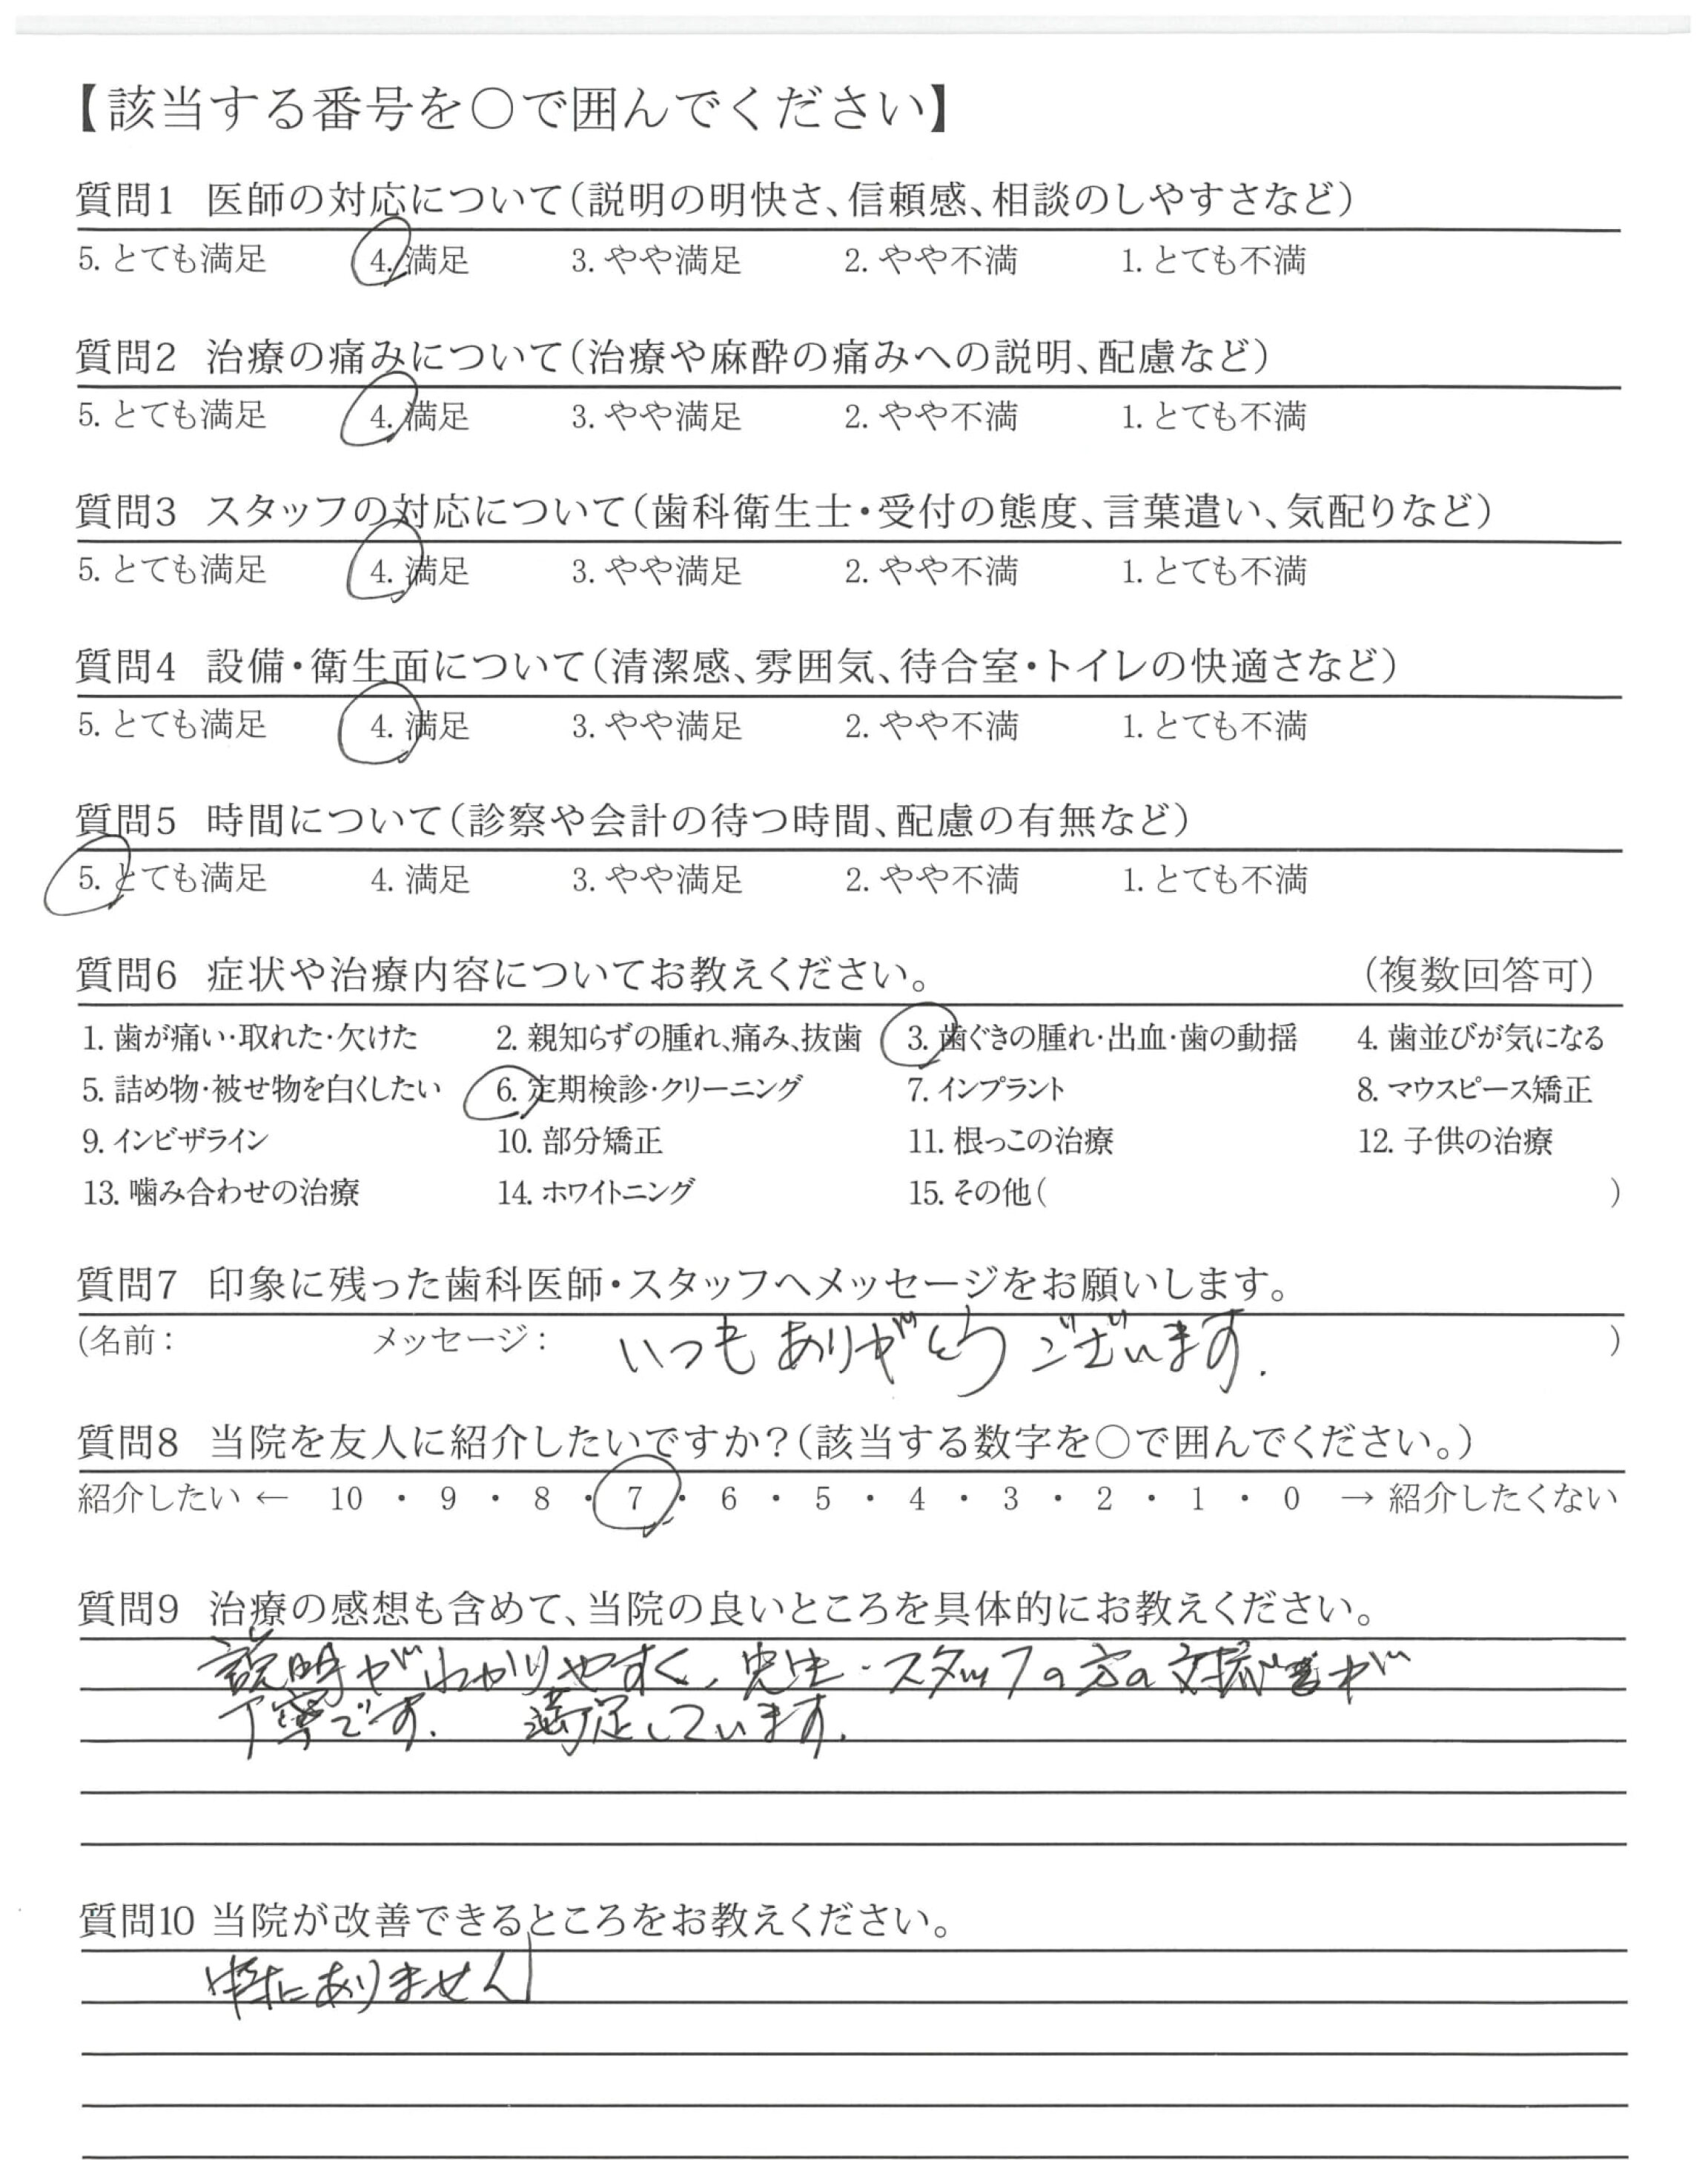 【該当する番号を○で囲んでください】
質問1 医師の対応について(説明の明快さ、信頼感、相談のしやすさなど)
5. とても満足 4. 満足 3. やや満足 2. やや不満 1. とても不満
質問2 治療の痛みについて(治療や麻酔の痛みへの説明、配慮など)
5. とても満足 4. 満足 3. やや満足 2. やや不満 1. とても不満
質問3 スタッフの対応について(歯科衛生士・受付の態度、言葉遣い、気配りなど)
5. とても満足 4. 満足 3. やや満足 2. やや不満 1. とても不満
質問4 設備・衛生面について(清潔感、雰囲気、待合室・トイレの快適さなど)
5. とても満足 4. 満足 3. やや満足 2. やや不満 1. とても不満
質問5 時間について(診察や会計の待つ時間、配慮の有無など)
5. とても満足 4. 満足 3. やや満足 2. やや不満 1. とても不満
質問6 症状や治療内容についてお教えください。 (複数回答可)
1. 歯が痛い・取れた・欠けた 2. 親知らずの腫れ、痛み、抜歯 3. 歯ぐきの腫れ・出血・歯の動揺 4. 歯並びが気になる
5. 詰め物・被せ物を白くしたい 6. 定期検診・クリーニング 7. インプラント 8. マウスピース矯正
9. インビザライン 10. 部分矯正 11. 根っこの治療 12. 子供の治療
13. 噛み合わせの治療 14. ホワイトニング 15. その他( )
質問7 印象に残った歯科医師・スタッフへメッセージをお願いします。
(名前: メッセージ: いつもありがとうございます. )
質問8 当院を友人に紹介したいですか?(該当する数字を○で囲んでください。)
紹介したい ← 10 ・ 9 ・ 8 ・ 7 ・ 6 ・ 5 ・ 4 ・ 3 ・ 2 ・ 1 ・ 0 → 紹介したくない
質問9 治療の感想も含めて、当院の良いところを具体的にお教えください。
説明がわかりやすく、先生・スタッフの方の対応が
丁寧です. 満足しています.
質問10 当院が改善できるところをお教えください。
特にありません